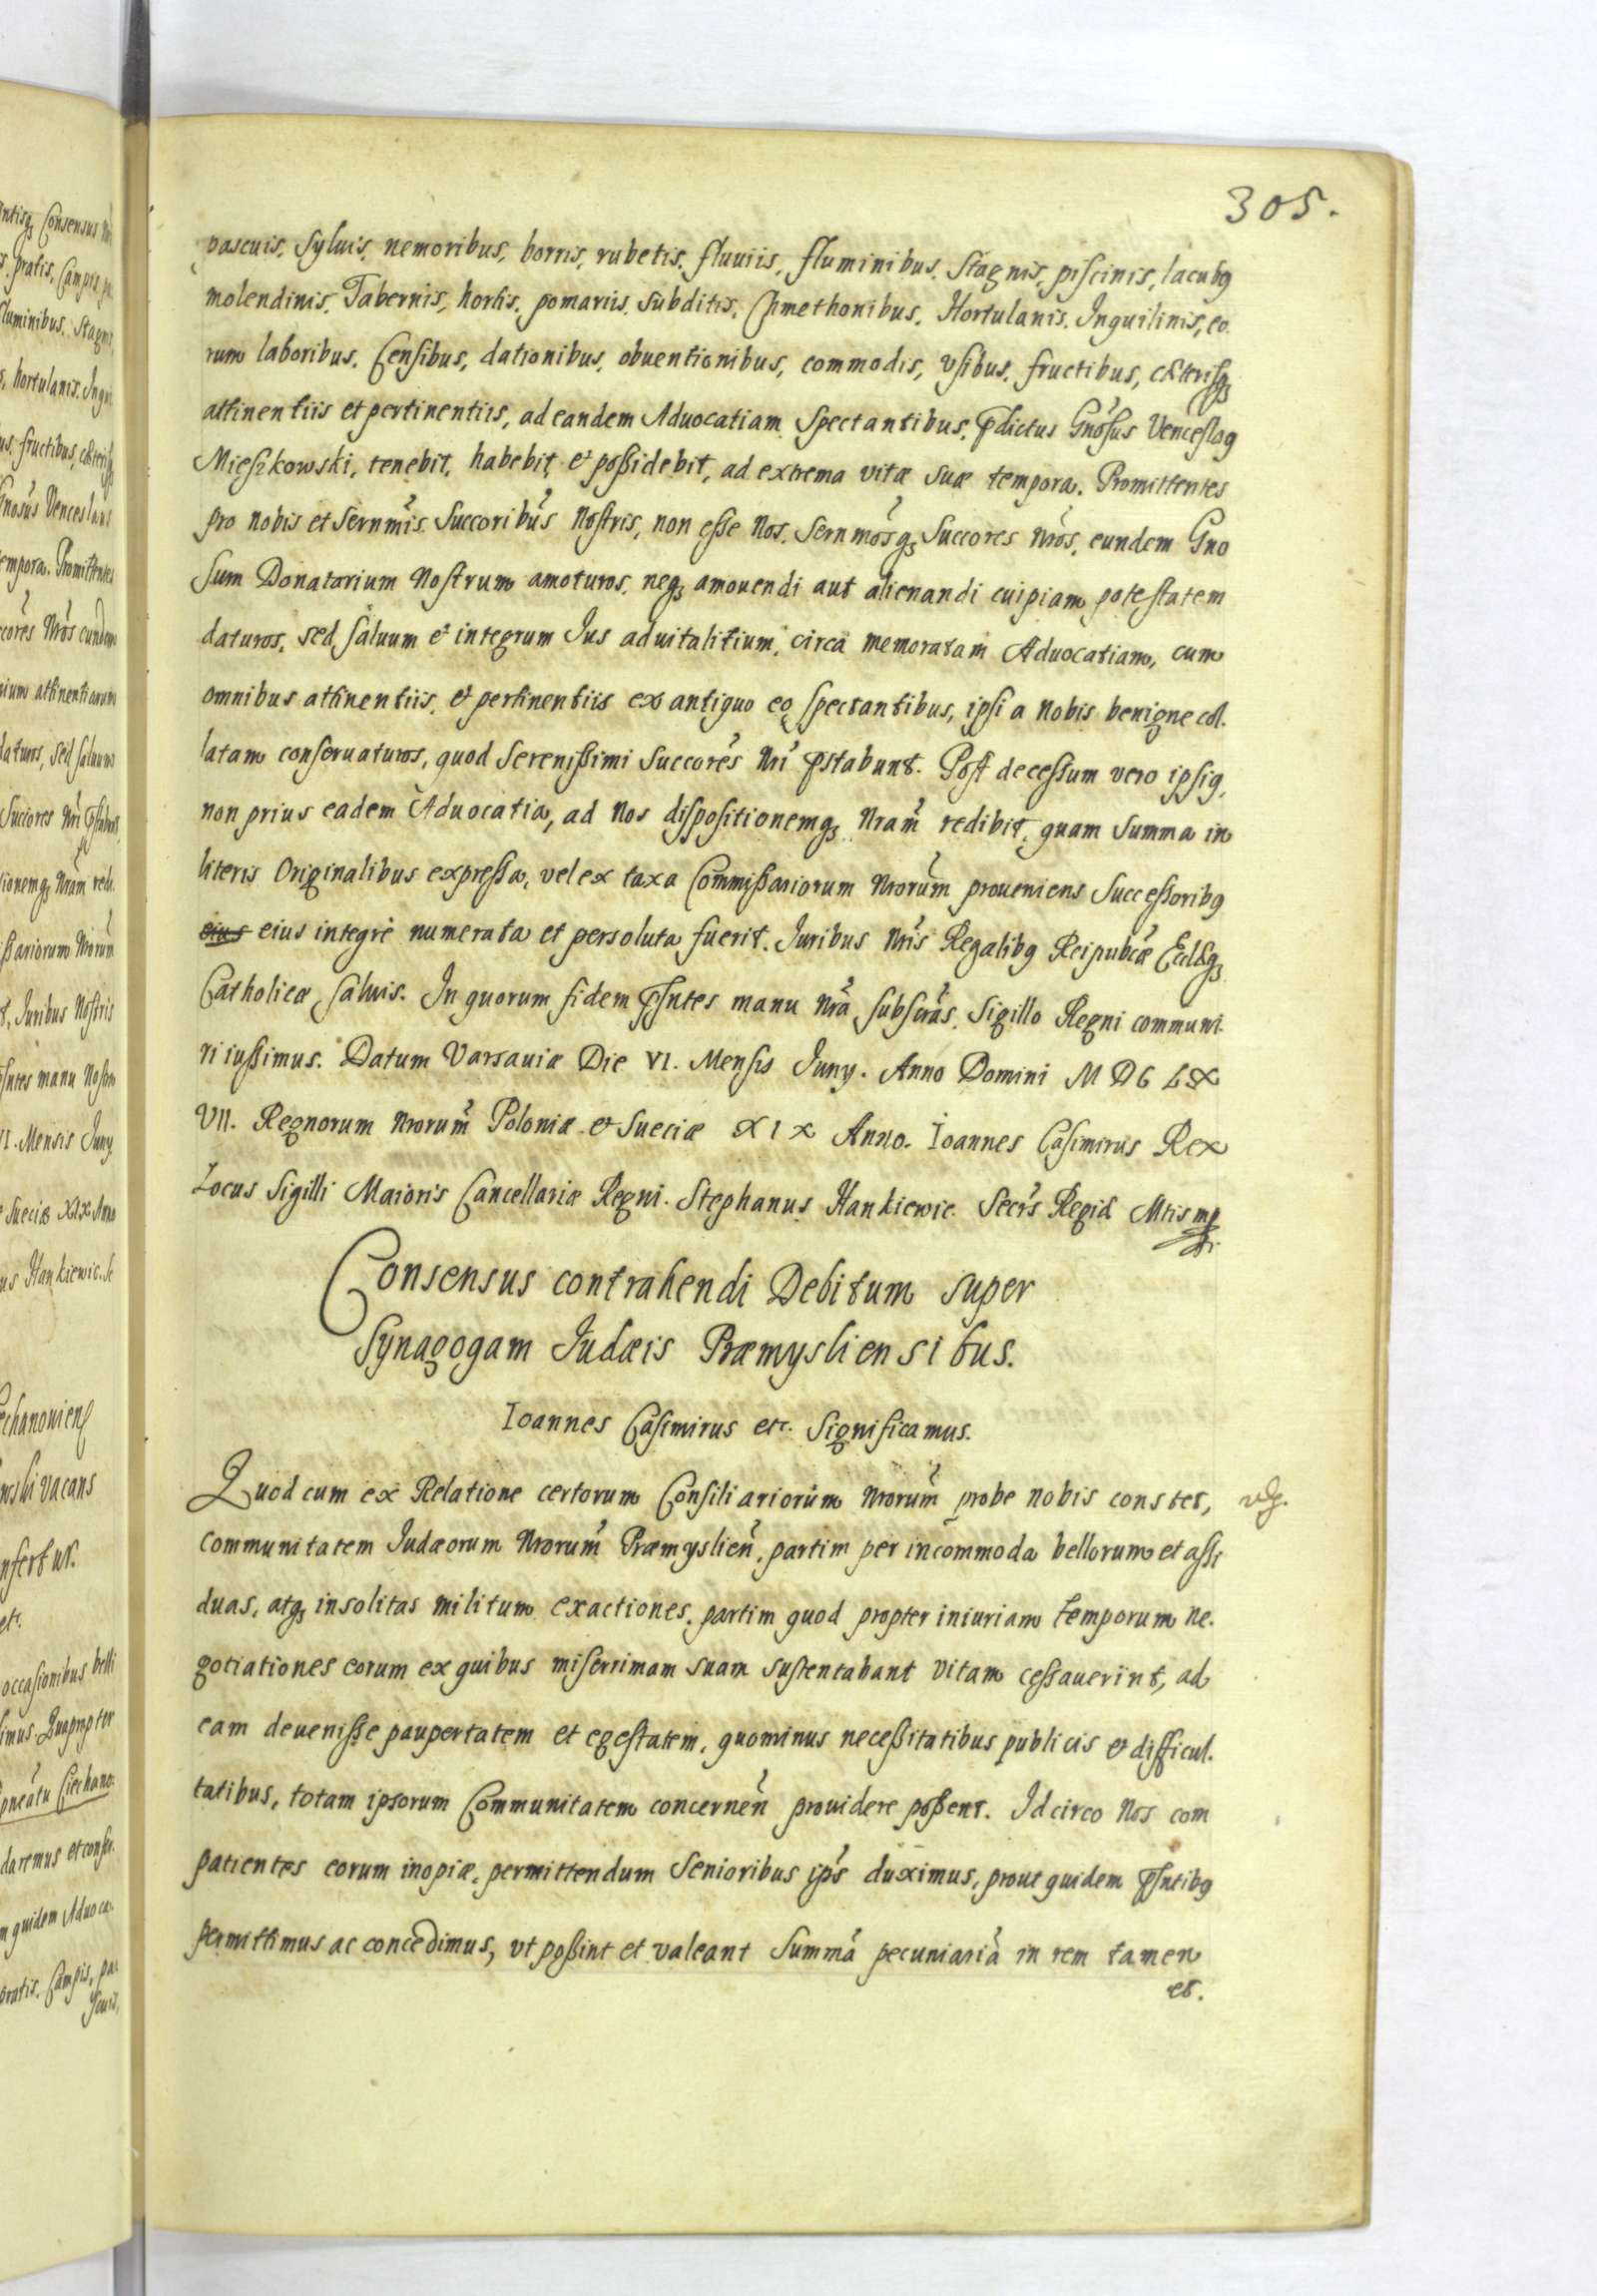 305.
pascuis, Syluis, nemoribus, borris, rubetis, fluuiis, fluminibus, Stagnis, piscinis, lacubq
molendinis, Tabernis, hortis, pomariis, Subditis, Cmethonibus, Hortulanis, Inquilinis, eo
rum laboribus, Censibus, dationibus, obuentionibus, commodis, Vsibus, fructibus, cæterisq
attinentiis et pertinentiis, ad eandem Aduocatiam Spectantibus, Pdictus Gnosus Venceslaq
Mieszkowski, tenebit, habebit et possidebit, ad extrema vitæ suæ tempora. Promittentes
pro nobis et Sernmis Succoribus Nostris, non esse Nos, Sernmosq Succores Nros, eundem Gno
sum Donatarium Nostrum amoturos, neq amouendi aut alienandi cuipiam potestatem
daturos, sed saluum et integrum Ius aduitalitium, circa memoratam Aduocatiam, cum
omnibus attinentiis, et pertinentiis ex antiquo eo spectantibus, ipsi a nobis benigne col.
latam conseruaturos, quod Serenissimi Succores Nri pstabunt. Post decessum vero ipsiq,
non prius eadem Aduocatia, ad Nos dispositionemq Nram redibit, quam Summa in
literis Originalibus expressa, vel ex taxa Commissariorum Nrorum proueniens Successoribq
eius eius integrè numerata et persoluta fuerit. Iuribus Nris Regalibq Reipubcæ Eccl&q
Catholicæ saluis. In quorum fidem psntes manu Nra subscras, Sigillo Regni communi-
ri iussimus. Datum Varsauiæ Die VI. Mensis Juny. Anno Domini M DC LX
VII. Regnorum Nrorum Poloniæ et Sueciæ XIX Anno. Ioannes Casimirus Rex
Locus Sigilli Maioris Cancellariæ Regni. Stephanus Hankiewic. Secrs Regiæ Mtis mp
Consensus contrahendi Debitum super
Synagogam Iudæis Præmysliensibus.
Ioannes Casimirus etc. Significamus.
Quod cum ex Relatione certorum Consiliariorum Nrorum probe nobis constet,
Communitatem Iudæorum Nrorum Præmyslien, partim per incommoda bellorum et assi
duas, atq insolitas militum exactiones, partim quod propter iniuriam temporum ne.
gotiationes eorum ex quibus miserrimam suam sustentabant vitam cessauerint, ad
eam deuenisse paupertatem et egestatem, quominus necessitatibus publicis et difficul.
tatibus, totam ipsorum Communitatem concernen prouidere possent. Idcirco Nos com
patientes eorum inopiæ, permittendum Senioribus ips duximus, prout quidem psntibq
permittimus ac concedimus, vt possint et valeant Summa pecuniaria in rem tamen
et.